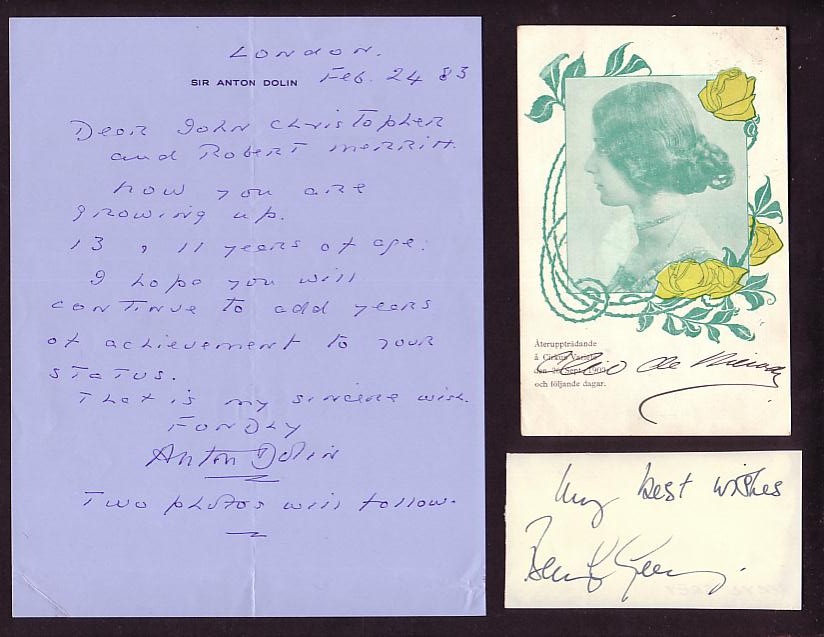 London.
SIR ANTON DOLIN Feb. 24 83
Dear John Christopher
and Robert Merritt.
How you are
growing up.
13, 11 years of age.
I hope you will
continue to add years
of achievement to your
status.
That is my sincere wish.
Fondly
Anton Dolin
Two photos will follow.
Återuppträdande
à Cirkus Varieté
den 26 Sept. 1900
och följande dagar.
Cléo de Mérode
My best wishes
Beryl Grey.